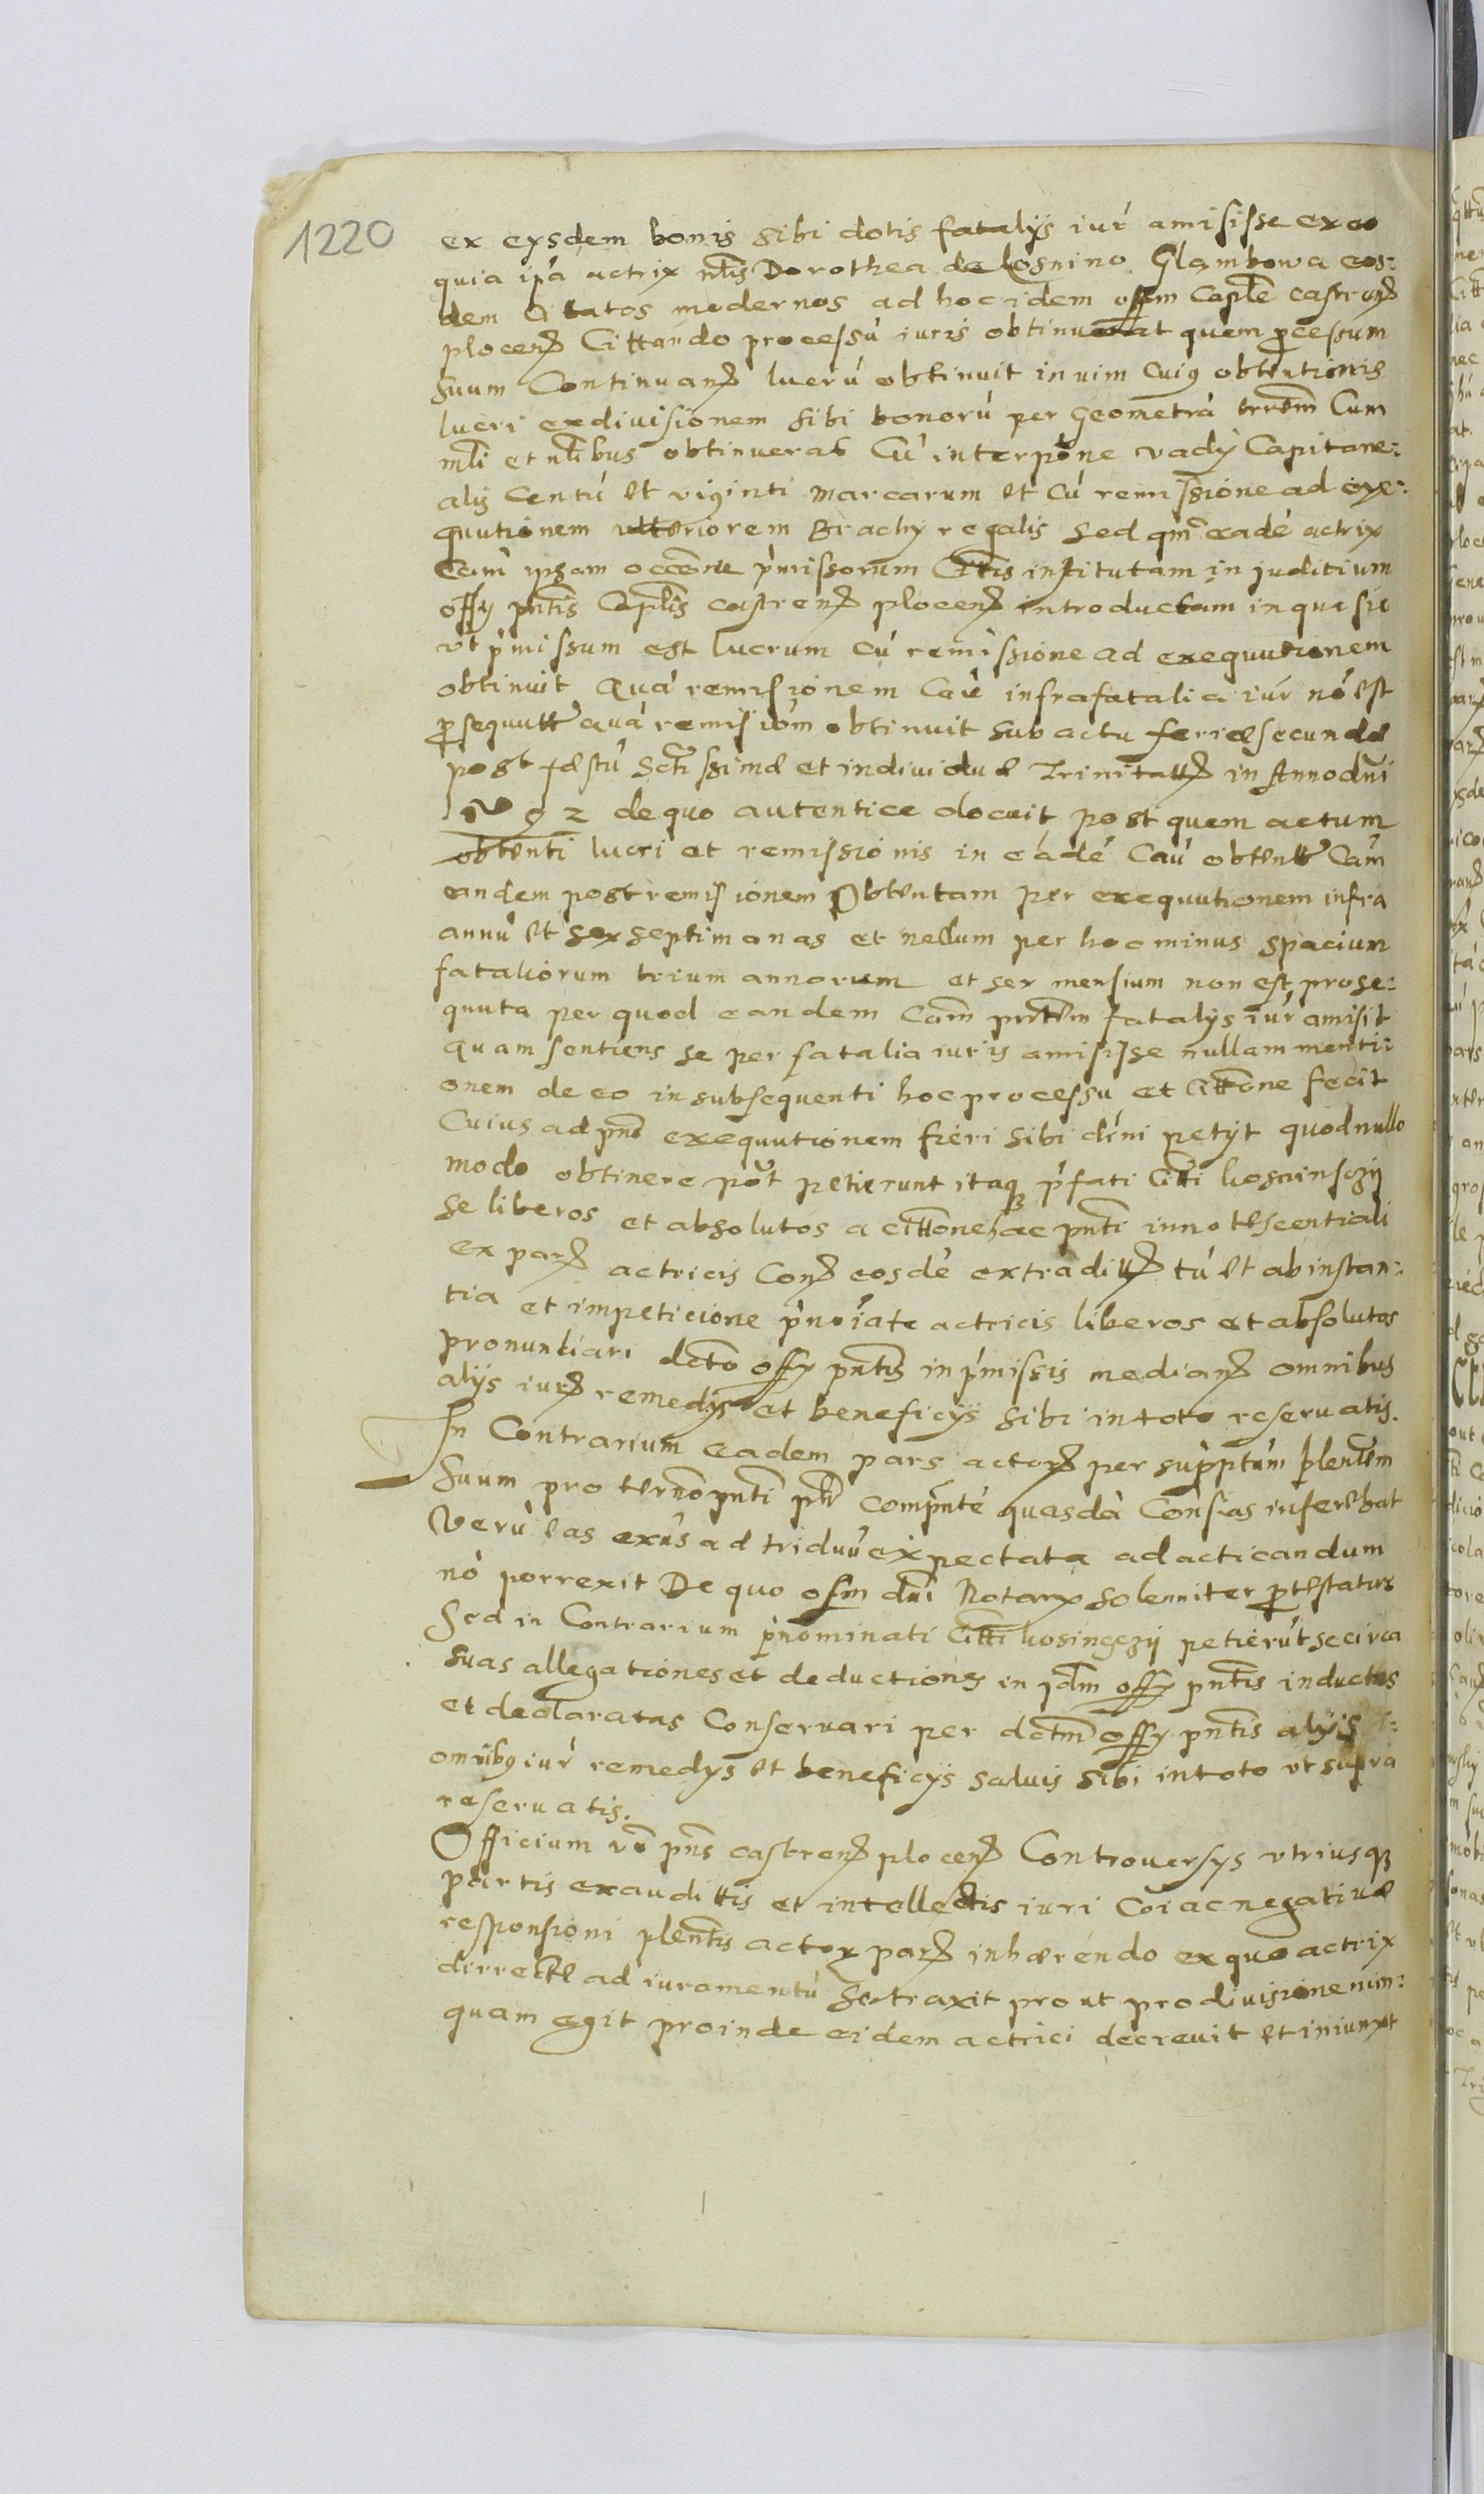 1220
ex eysdem bonis sibi dotis fatalys iur amisisse ex eo
quia ipa actrix nlis Dorothea de Losnino Glambowa eos:
dem Citatos modernos ad hoc idem offm Caple castren
plocen Cittando processu iuris obtinuerat quem pcessum
suum Continuan lucru obtinuit in vim cuig obtentionis
lucri exdivisionem sibi bonoru per Geometra trrem Cum
mli et nlibus obtinuerat Cu interpone vadÿ Capitane:
alis Centu et viginti marcarum et cu remissione ad exe:
quutionem ulteriorem Brachy regalis sed qm eade actrix
Cam ipsam occone pmissorum Cittis institutam in juditium
offy pntis Caplis castren plocen introductam in qua sic
vt pmissum est lucrum cu remissione ad exequutionem
obtinuit Qua remisionem Cau infra fatalia iur no est
psequutt qua remisiom obtinuit sub actu feriæ secundæ
post festu Sctissimæ et individuæ Trinitatt in Anno dni
de quo autentice docuit post quem actum
obtenti lucri et remissionis in eade Cau obtentt Cam
eandem post remisionem Obtentam per exequutionem infra
annu et sex septimanas et nedum per hoc minus spacium
fataliorum trium annorum et sex mensium non est prose:
quuta per quod eandem Cam pntem fatalys iur amisit
quam sentiens se per fatalia iuris amisisse nullam menti:
onem de eo in subsequenti hoc processu et Cittone fecit
Cuius ad pns exequutionem fieri sibi dcni petÿt quod nullo
modo obtinere pot petierunt itaq pfati Citti Losninsczÿ
se liberos et absolutos a cittone hac pnti innotescentiali
ex par actricis Con eosde extraditt tu et ab instan:
tia et impeticione pnoiate actricis liberos et absolutos
pronuntiari dcto offy pntis in pmissis median omnibus
alÿs iur remedÿs et beneficÿs sibi in toto reservatis.
In Contrarium eadem pars actor per supptum plentem
suum pro termo pnti ptr compnte quasda Consias inferebat
Veru eas exns ad triduu expectata ad acticandum
no porrexit De quo osm dni Notary solenniter ptestatur
Sed in Contrarium pnominati Citti Losinsczÿ petierut se circa
suas allegationes et deductiones in jdm offy pntis inductas
et declaratas Conservari per dctm offy pntis alÿis
omibg iur remedÿs et beneficÿs salvis sibi in toto vt supra
reservatis.
Officium vo pns castren plocen Controversys vtriusq
partis exaudittis et intellectis iuri Coi ac negativæ
responsioni plentis actor par inhærendo ex quo actrix
dirrecte ad iuramentu se traxit prout pro divisione nun:
quam egit proinde eidem actrici decrevit et iniunxit